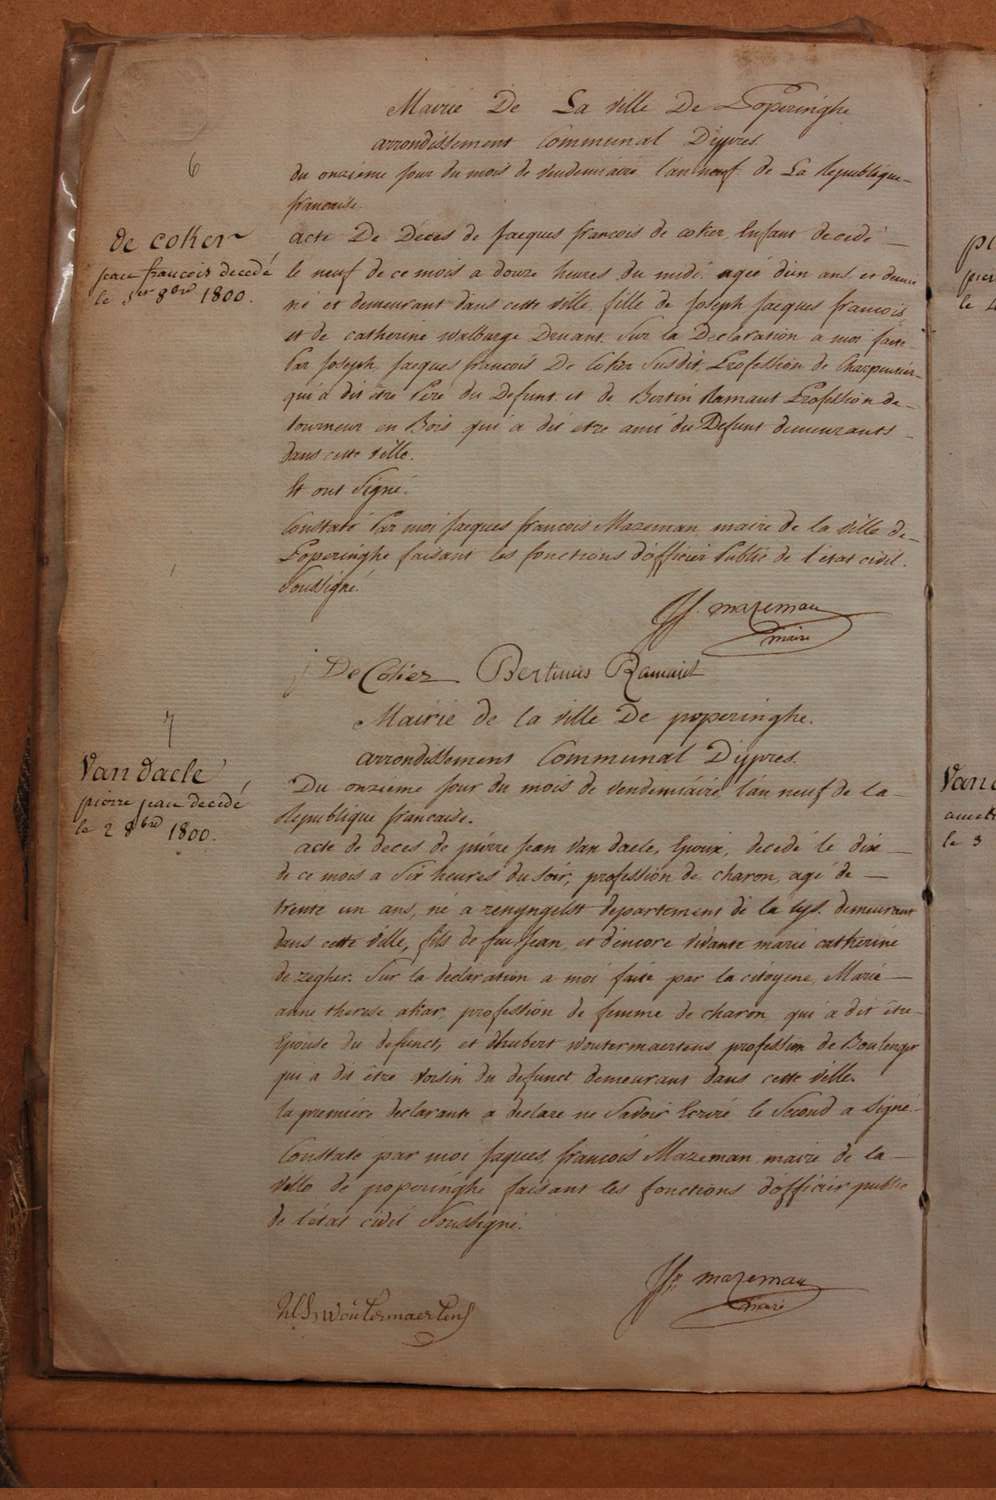 Mairie De La ville De Poperinghe
arrondissement Communal Dÿpres
6
du onzieme jour du mois de vendemiaire l'an neuf de La Republique
francaise.
de coker
jean francois decedé
le 1er 8bre 1800.
acte De Décès de Jacques francois de coker, Enfant decedé
le neuf de ce mois a douze heures du midi, agié d'un ans et demie
né et demeurant dans cette ville, fille de Joseph Jacques francois
et de catherine walburge Druant. Sur la Declaration a moi faite
Par Joseph Jacques francois De Coker Susdit, Profession de Charpentier
qui a dit être Père du Defunt et de Bertin Ramaut Profession de
tourneur en Bois qui a dit etre ami du Defunt demeurants
dans cette ville.
Et ont Signé.
Constaté Par moi Jacques francois Mazeman maire de la ville de
Poperinghe faisant les fonctions d'officier Public de l'etat civil.
Soussigné.
JJf. mazeman
maire
j De Coker Bertinus Ramaut
7
Mairie de la ville De poperinghe.
arrondissement Communal Dÿpres.
Van daele
pierre jean decedé
le 2 8bre 1800.
Du onzieme jour du mois de vendemiaire l'an neuf de la
Republique francaise.
acte de deces de pierre Jean Van daele, Epoux, decedé le dix
de ce mois a Six heures du Soir, profession de charon, agé de
trente un ans, né a renyngelst departement de la lys. demeurant
dans cette ville, fils de feu Jean, et d'encore vivante marie catherine
de zegher. Sur la declaration a moi faite par la citoyene, Marie
anne therese akar, profession de femme de charon qui a dit être
Epouse du defunct, et d'hubert woutermaertens profession de Boulenger
qui a dit être voisin du defunct demeurant dans cette ville.
la premiere declarante a declare ne Savoir Ecrire le Second a signé.
Constaté par moi Jaques francois Mazeman maire de la
ville de poperinghe faisant les fonctions d'officier public
de l'état civil Soussigné.
JJf. mazeman
maire
woutermaertens
Vand
le 3